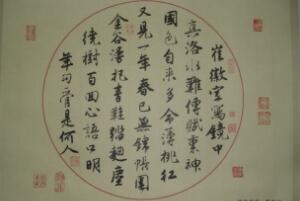 崔徽空寫鏡中
真洛水難傳賦裏神
國色自來多命薄桃紅
又見一年春已無錦帳圍
金谷漫把青鞋踏麴塵
繞樹百回心語口明
年勾管是何人